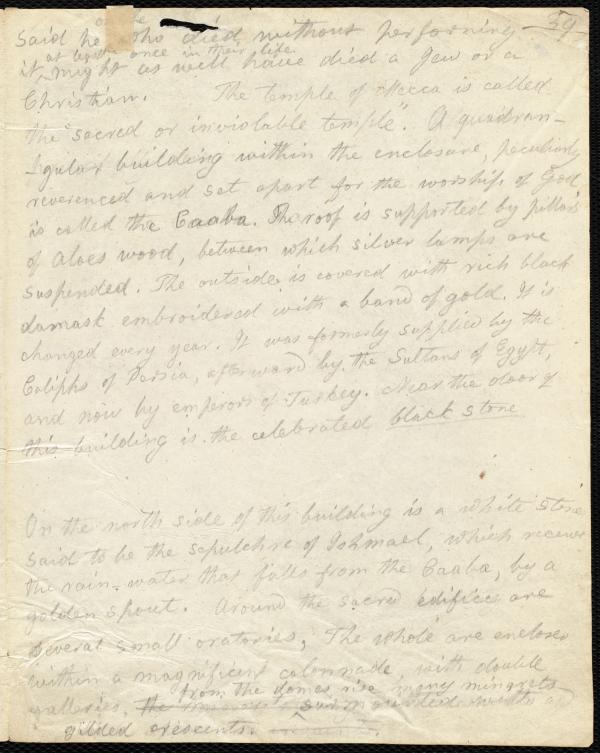 59
said he who died without performing
it, at least once in their life might as well have died a Jew or a
Christian. The temple of Mecca is called
the "sacred or inviolable temple". A quadran-
gular building within the enclosure, peculiarly
reverenced and set apart for the worship of God
is called the Caaba. The roof is supported by pillars
of aloes wood, between which silver lamps are
suspended. The outside is covered with rich black
damask embroidered with a band of gold. It is
changed every year. It was formerly supplied by the
Caliphs of Persia, afterward by the Sultans of Egypt,
and now by emperors of Turkey. Near the door of
this building is the celebrated black stone
On the north side of this building is a white stone
said to be the sepulchre of Ishmael, which receives
the rain-water that falls from the Caaba, by a
golden spout. Around the sacred edifice are
several small oratories, The whole are enclosed
within a magnificent colonnade, with double
galleries, from the domes rise many minarets
the surmounted with
gilded crescents.